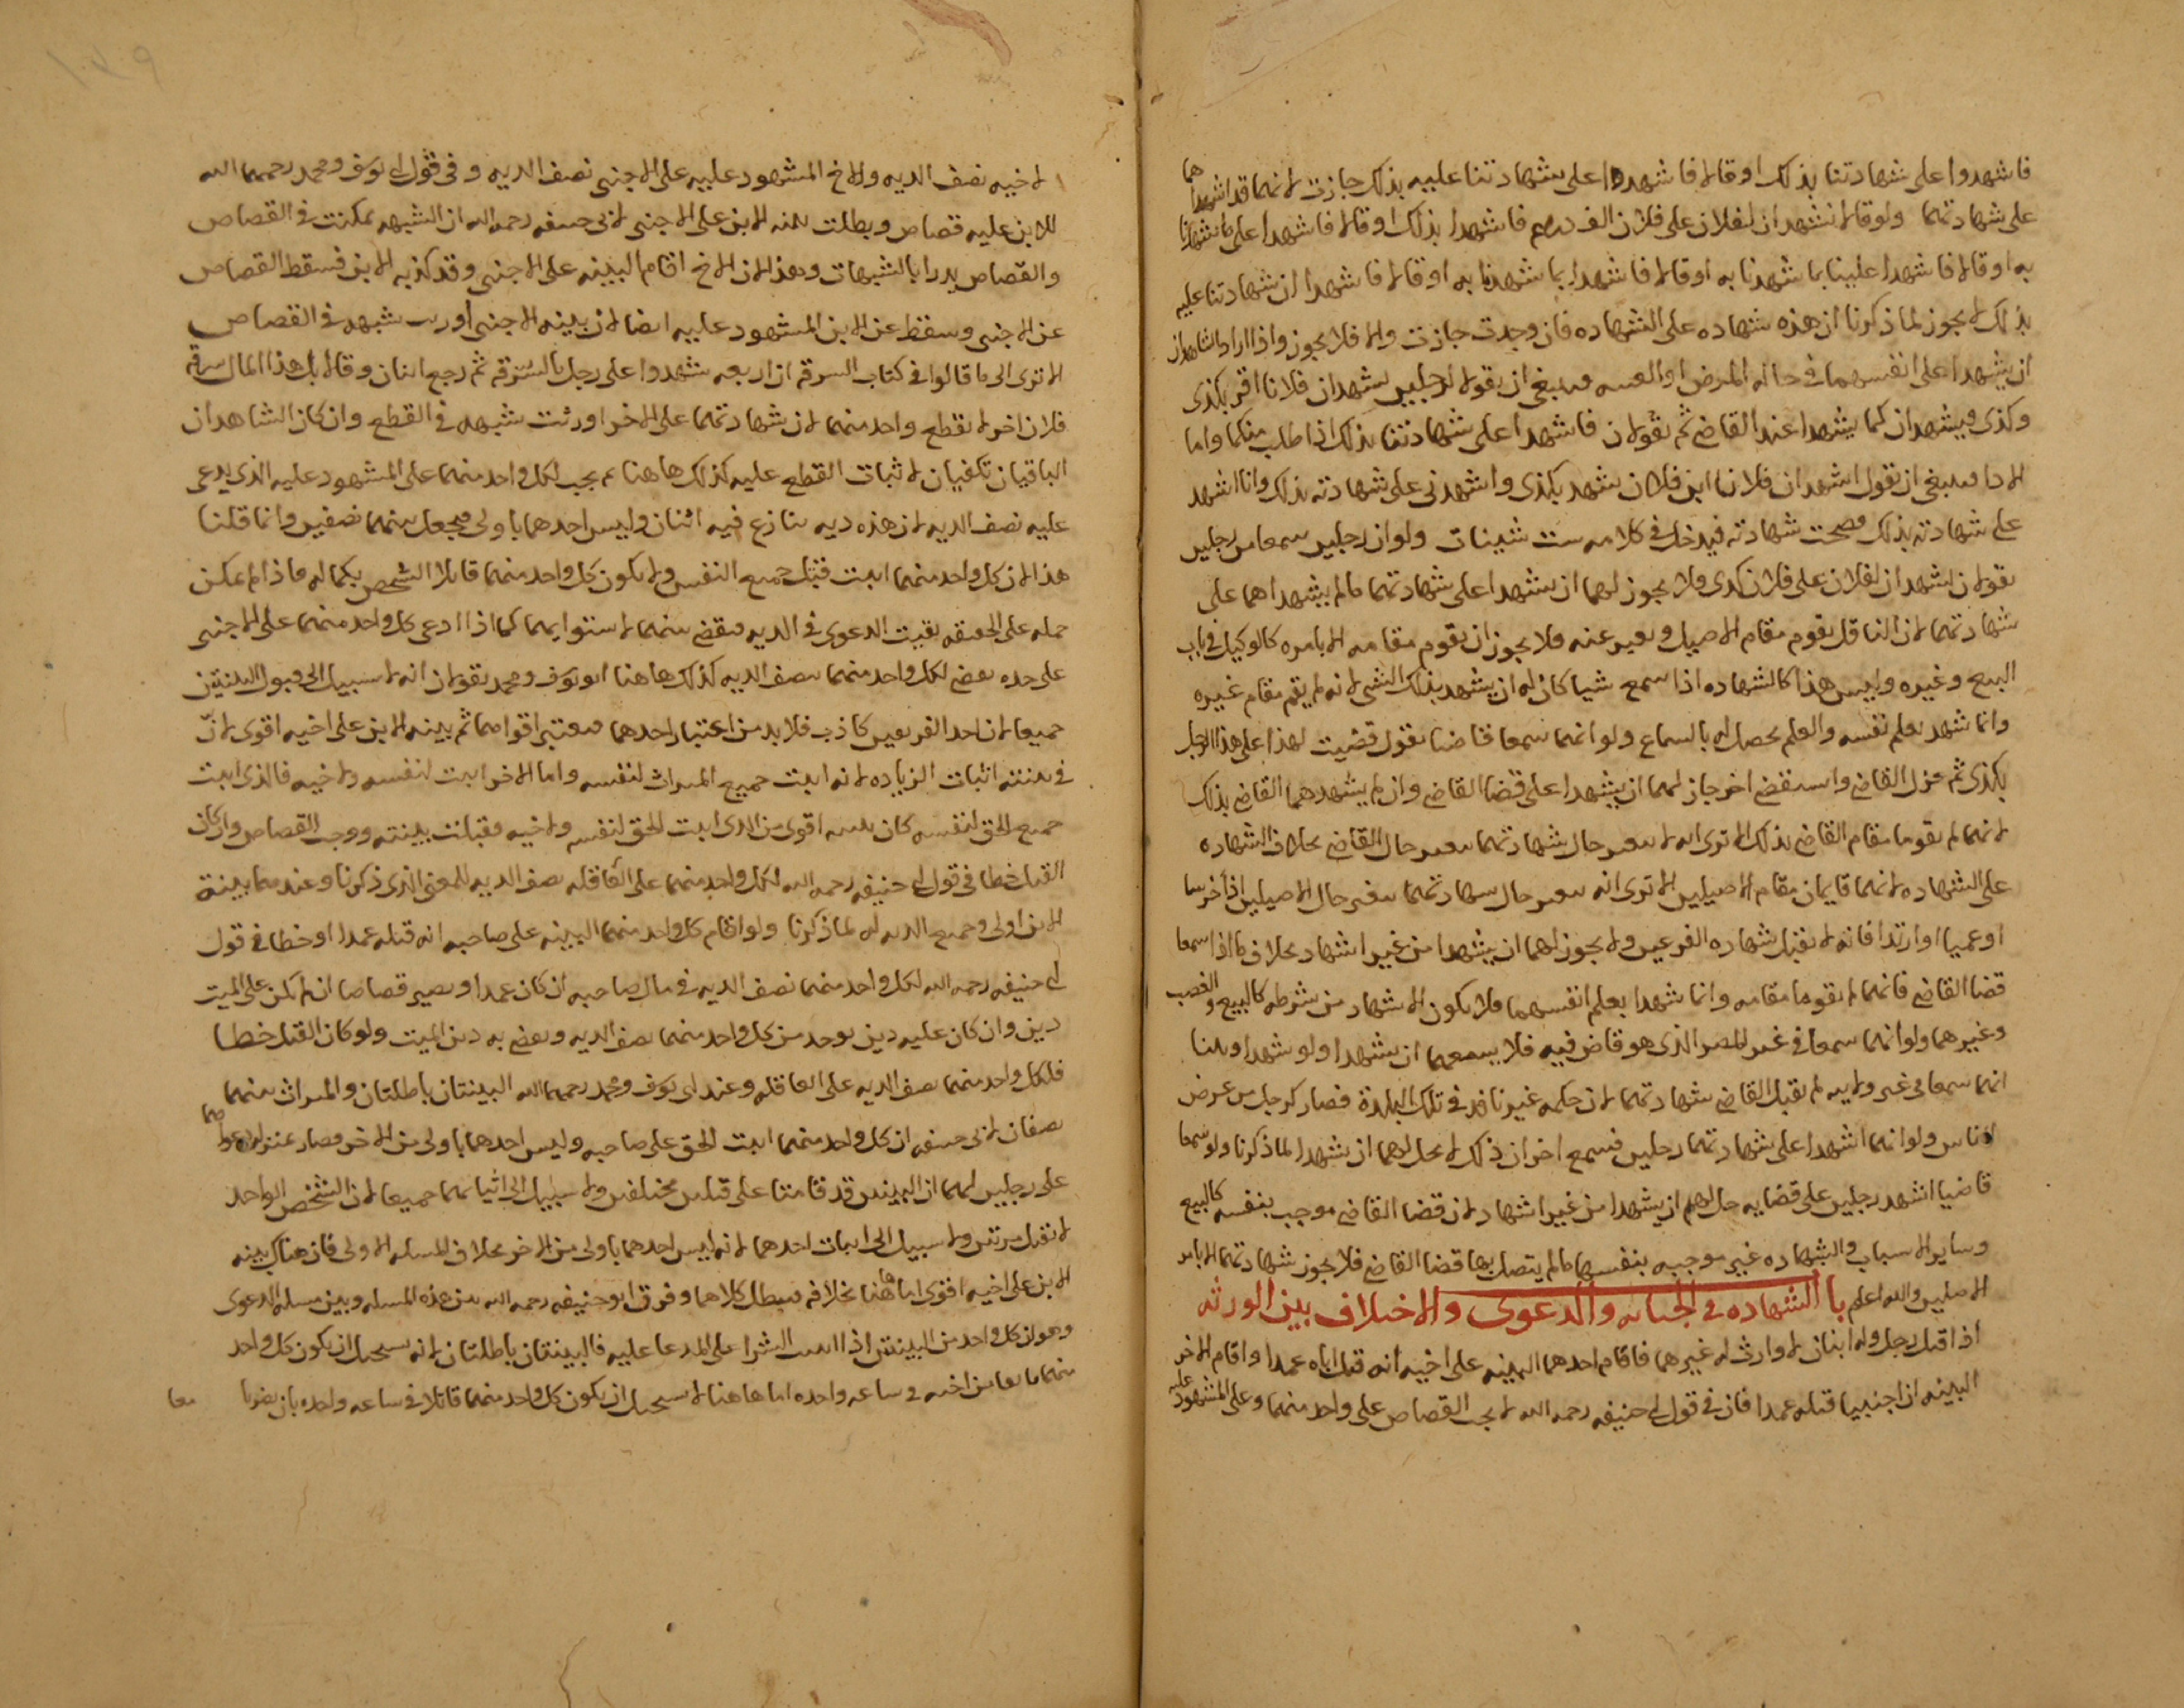 فاشهدوا على شهادتنا بذلك او قالا فاشهدا على شهادتنا عليه بذلك جازت لانهما قد اشهداهما
على شهادتهما ولو قالا نشهد ان لفلان على فلان الف درهم فاشهدا بذلك او قالا فاشهدا على ما شهدنا
به او قالا فاشهدا علينا بما شهدنا به او قالا فاشهدا بما شهدنا به او قالا فاشهدا ان شهادتنا عليه
بذلك لا يجوز لما ذكرنا ان هذه شهاده على الشهاده فان وجدت جازت والا فلا يجوز واذا اراد الشاهدان
ان يشهدا على انفسهما في حاله المرض او الغيبه فينبغي ان يقولا لرجلين نشهد ان فلانا اقر بكذى
وكذى ويشهدان كما يشهدا عند القاضي ثم يقولان فاشهدا على شهادتنا بذلك اذا طلب منكما واما
الادا فينبغي ان يقول اشهد ان فلانا ابن فلان شهد بكذى واشهدني على شهادته بذلك وانا اشهد
على شهادته بذلك فصحت شهادته فيدخل في كلامه ست شينات ولو ان رجلين سمعا من رجلين
يقولان نشهد ان لفلان على فلان كدى فلا يجوز لهما ان يشهدا على شهادتهما ما لم يشهداهما على
شهادتهما لان الناقل يقوم مقام الاصيل ويعبر عنه فلا يجوز ان يقوم مقامه الا بامره كالوكيل في باب
البيع وغيره وليس هذا كالشهاده اذا سمع شيا كان له ان يشهد بذلك الشي لانه لم يقم مقام غيره
وانما شهد بعلم نفسه والعلم يحصل له بالسماع ولو انهما سمعا قاضيا يقول قضيت لهذا على هذا الرجل
بكذى ثم عزل القاضي واستقضى اخر جاز لهما ان يشهدا على قضا القاضي وان لم يشهدهما القاضي بذلك
لانهما لم يقوما مقام القاضي بذلك الا ترى انه لا يتغير حال شهادتهما بتغير حال القاضي بخلاف الشهاده
على الشهاده لانهما قايمان مقام الاصيلين الا ترى انه يتغير حال شهادتهما بتغير حال الاصيلين اذا خرسا
او عميا او ارتدا فانه لا تقبل شهاده الفرعين ولا يجوز لهما ان يشهدا من غير اشهاد بخلاف ما اذا سمعا
قضا القاضي فانهما لم يقوما مقامه وانما شهدا بعلم انفسهما فلا يكون الاشهاد من شرطه كالبيع والغصب
وغيرهما ولو انهما سمعا في غير المصر الذي هو قاض فيه فلا يسعهما ان يشهدا ولو شهدا وبينا
انهما سمعا في غير ولايته لم تقبل القاضي شهادتهما لان حكمه غير نافذ في تلك البلدة فصار كرجل من عرض
الناس ولو انهما اشهدا على شهادتهما رجلين فسمع اخران ذلك لا يحل لهما ان يشهدا لما ذكرنا ولو سمعا
قاضيا اشهد رجلين على قضايه حل لهم ان يشهدا من غير اشهاد لان قضا القاضي موجب بنفسه كالبيع
وساير الاسباب والشهاده غير موجبه بنفسها ما لم يتصل بها قضا القاضي فلا يجوز شهادتهما الا بامر
الاصلين والله اعلم باب الشهاده في الجنايه والدعوى والاختلاف بين الورثه
اذا قتل رجل وله ابنان لا وارث له غيرهما فاقام احدهما البينه على اخيه انه قتل اباه عمدا واقام الاخر
البينه ان اجنبيا قتله عمدا فان في قول ابي حنيفه رحمه الله لا يجب القصاص على واحد منهما وعلى المشهود عليه
لاخيه نصف الديه ولاخ المشهود عليه على الاجنبي نصف الديه وفي قول ابي يوسف ومحمد رحمهما الله
للابن عليه قصاص وبطلت بينه الابن على الاجنبي لابي حنيفه رحمه الله ان الشبهه تمكنت في القصاص
والقصاص يدرا بالشبهات وهذا لان الاخ اقام البينه على الاجنبي وقد كذبه الابن فسقط القصاص
عن الاجنبي وسقط عن الابن المشهود عليه ايضا لان بينه الاجنبي اورثت شبهه في القصاص
الا ترى الى ما قالوا في كتاب السرقه ان اربعه شهدوا على رجل بالسرقه ثم رجع اثنان وقالا بل هذا المال سرقه
فلان اخر لا يقطع واحد منهما لان شهادتهما على الاخر اورثت شبهه في القطع وان كان الشاهدان
الباقيان تكفيان لاثبات القطع عليه كذلك هاهنا ثم يجب لكل واحد منهما على المشهود عليه الذي يدعى
عليه نصف الديه لان هذه ديه تنازع فيه اثنان وليس احدهما باولى فيجعل بينهما نصفين وانما قلنا
هذا لان كل واحد منهما اثبت قتل جميع النفس ولا يكون كل واحد منهما قاتلا الشخص بكماله فاذا لم يمكن
حمله على الحقيقه بقيت الدعوى في الديه فيقضى بينهما لاستوايهما كما اذا ادعى كل واحد منهما على الاجنبي
على حده يقضى لكل واحد منهما بنصف الديه كذلك هاهنا ابو يوسف ومحمد يقولان انه لا سبيل الى قبول البينتين
جميعا لان احد الفريقين كاذب فلا بد من اعتبار احدهما فيعتبر اقواهما ثم بينه الابن على اخيه اقوى لان
في بينته اثبات الزياده لانه اثبت جميع الميراث لنفسه واما الاخر اثبت لنفسه ولاخيه فالذي اثبت
جميع الحق لنفسه كان بينته اقوى من الذي اثبت الحق لنفسه ولاخيه فقبلت بينته ووجب القصاص وان كان
القتل خطا في قول ابي حنيفه رحمه الله لكل واحد منهما على العاقله نصف الديه للمعنى الذي ذكرنا وعندهما بينة
الابن اولى وجميع الديه له لما ذكرنا ولو اقام كل واحد منهما البينه على صاحبه انه قتله عمدا او خطا في قول
ابي حنيفه رحمه الله لكل واحد منهما نصف الديه في مال صاحبه ان كان عمدا ويصير قصاصا ان لم يكن على الميت
دين وان كان عليه دين يوخد من كل واحد منهما نصف الديه ويقضى به دين الميت ولو كان القتل خطا
فلكل واحد منهما نصف الديه على العاقله وعند ابي يوسف ومحمد رحمهما الله البينتان باطلتان والميراث بينهما
نصفان لابي حنيفه ان كل واحد منهما اثبت الحق على صاحبه وليس احدهما باولى من الاخر فصار
على رجلين لهما ان البينتين قد قامتا على قتلين مختلفين ولا سبيل الى اثباتهما جميعا لان الشخص الواحد
لا تقتل مرتين ولا سبيل الى اثبات احدهما لانه ليس احدهما باولى من الاخر بخلاف المسله الاولى فان هناك بينه
الابن على اخيه اقوى اما هاهنا بخلافه فيبطل كلاهما وفرق ابو حنيفه رحمه الله بين هذه المسله وبين مسله الدعوى
وهو ان كل واحد من البينتين اذا اثبت الشرا على المدعا عليه فالبينتان باطلتان لانه يستحيل ان يكون كل واحد
منهما بايعا من اخيه في ساعه واحده اما هاهنا لا يستحيل ان يكون كل واحد منهما قاتلا في ساعه واحده بان يضربا معا